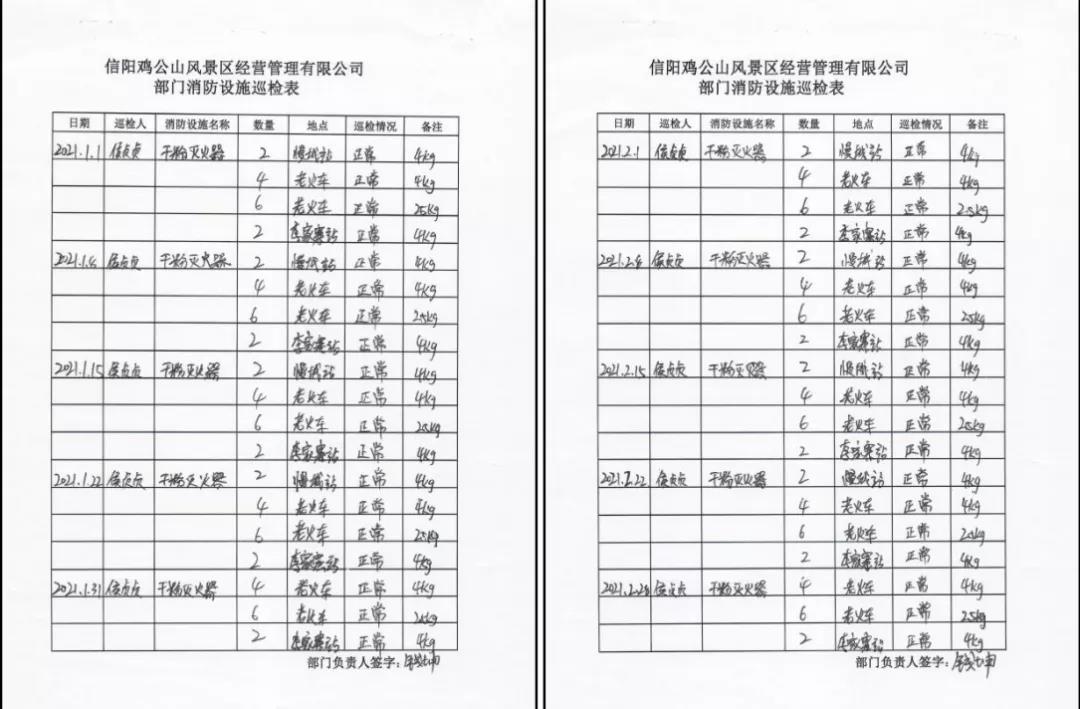 信阳鸡公山风景区经营管理有限公司
部门消防设施巡检表
日期 巡检人 消防设施名称 数量 地点 巡检情况 备注
2021.1.1 侯贞贞 干粉灭火器 2 慢城站 正常 4kg
4 老火车 正常 4kg
6 老火车 正常 25kg
2 李家寨站 正常 4kg
2021.1.8 侯贞贞 干粉灭火器 2 慢城站 正常 4kg
4 老火车 正常 4kg
6 老火车 正常 25kg
2 李家寨站 正常 4kg
2021.1.15 侯贞贞 干粉灭火器 2 慢城站 正常 4kg
4 老火车 正常 4kg
6 老火车 正常 25kg
2 李家寨站 正常 4kg
2021.1.22 侯贞贞 干粉灭火器 2 慢城站 正常 4kg
4 老火车 正常 4kg
6 老火车 正常 25kg
2 李家寨站 正常 4kg
2021.1.31 侯贞贞 干粉灭火器 4 老火车 正常 4kg
6 老火车 正常 25kg
2 李家寨站 正常 4kg
部门负责人签字：
信阳鸡公山风景区经营管理有限公司
部门消防设施巡检表
日期 巡检人 消防设施名称 数量 地点 巡检情况 备注
2021.2.1 侯贞贞 干粉灭火器 2 慢城站 正常 4kg
4 老火车 正常 4kg
6 老火车 正常 25kg
2 李家寨站 正常 4kg
2021.2.8 侯贞贞 干粉灭火器 2 慢城站 正常 4kg
4 老火车 正常 4kg
6 老火车 正常 25kg
2 李家寨站 正常 4kg
2021.2.15 侯贞贞 干粉灭火器 2 慢城站 正常 4kg
4 老火车 正常 4kg
6 老火车 正常 25kg
2 李家寨站 正常 4kg
2021.2.22 侯贞贞 干粉灭火器 2 慢城站 正常 4kg
4 老火车 正常 4kg
6 老火车 正常 25kg
2 李家寨站 正常 4kg
2021.2.28 侯贞贞 干粉灭火器 4 老火车 正常 4kg
6 老火车 正常 25kg
2 李家寨站 正常 4kg
部门负责人签字：